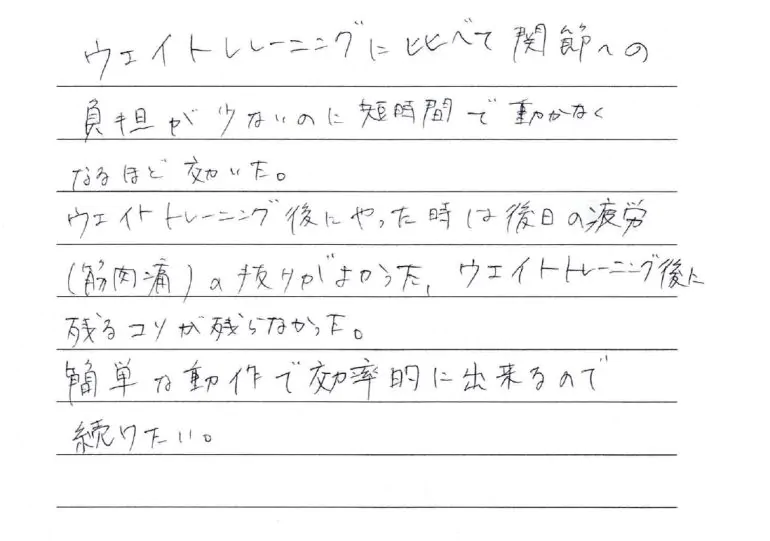 ウェイトレーニングに比べて関節への
負担が少ないのに短時間で動かなく
なるほど効いた。
ウェイトトレーニング後にやった時は後日の疲労
(筋肉痛)の抜けがよかった、ウェイトトレーニング後に
残るコリが残らなかった。
簡単な動作で効率的に出来るので
続けたい。